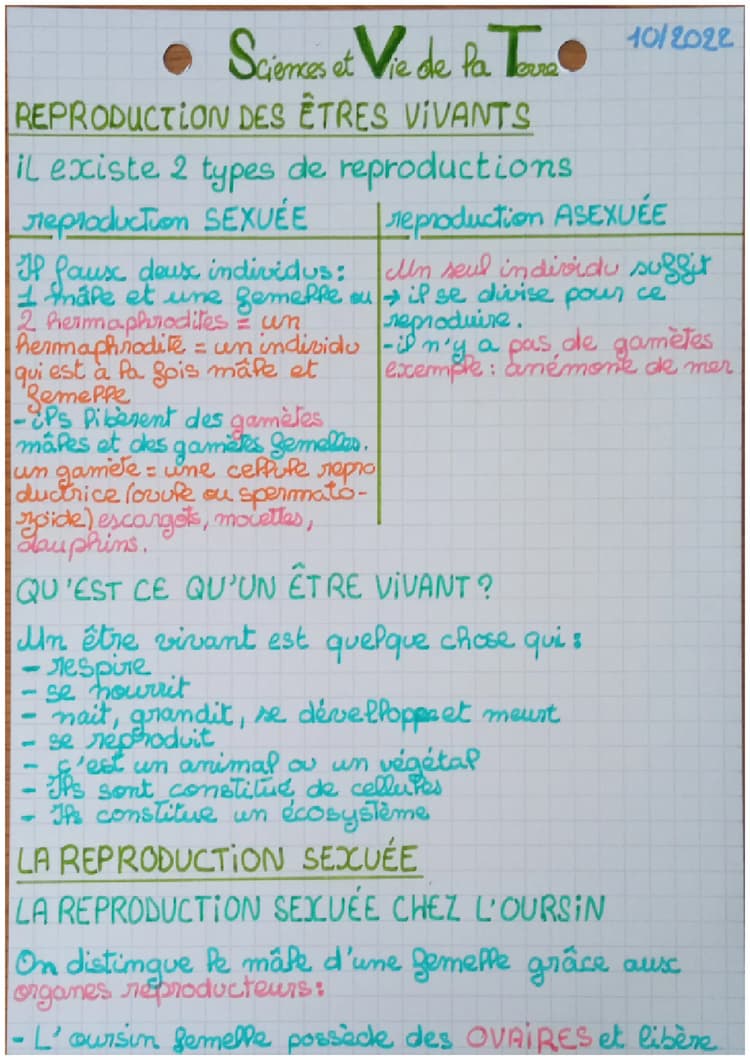 Sciences et Vie de la Terre
10/2022
REPRODUCTION DES ÊTRES ViVANTS
il existe 2 types de reproductions
reproduction SEXUÉE
Il faux deux individus:
1 mâle et une femelle ou
2 hermaphrodites = un
hermaphrodite = un individu
qui est à la fois mâle et
femelle
-ils libèrent des gamètes
mâles et des gamètes femelles.
un gamète = une cellule repro
ductrice (ovule ou spermato-
zoide) escargots, mouettes,
dauphins.
reproduction ASEXUÉE
Un seul individu suffit
→ il se divise pour ce
reproduire.
-il n'y a pas de gamètes
exemple : anémone de mer
QU'EST CE QU'UN ÊTRE ViVANT?
Un être vivant est quelque chose qui :
- respire
- se nourrit
- nait, grandit, se développe et meurt
- se reproduit
- c'est un animal ou un végétal
- Ils sont constitué de cellules
- Ils constitue un écosystème
LA REPRODUCTiON SEXUÉE
LA REPRODUCTiON SEXUÉE CHEZ L'OURSiN
On distingue le mâle d'une femelle grâce aux
organes reproducteurs:
- L'oursin femelle possède des OVAiRES et libère